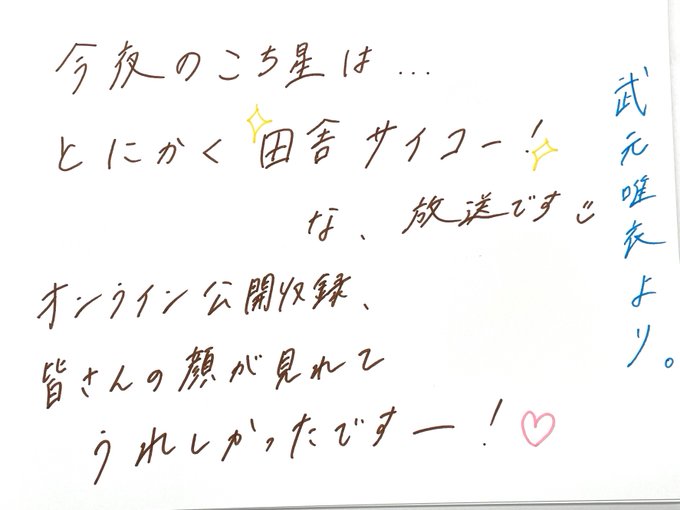 今夜のこち星は…
とにかく田舎サイコー!
な、放送です
オンライン公開収録、
皆さんの顔が見れて
うれしかったですー!
武元唯衣より。